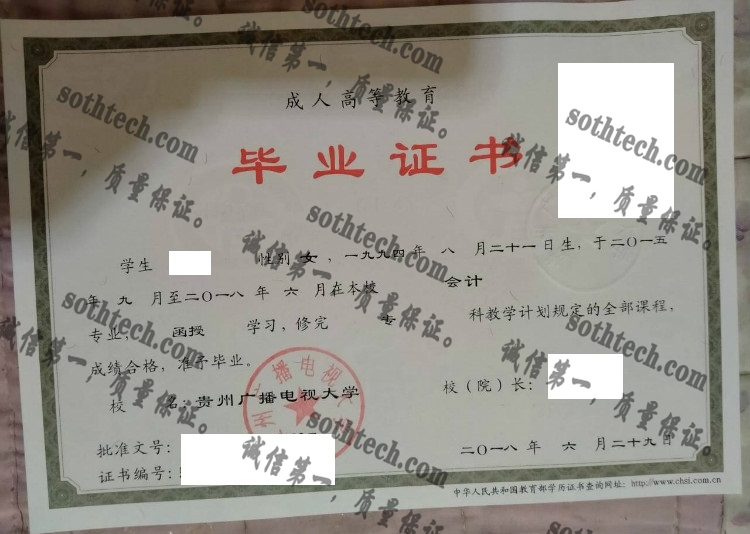 成人高等教育
毕业证书
学生 性别 女，一九九四年 八 月二十一日生，于二〇一五
年 九 月至二〇一八 年 六 月在本校 会计
专业， 函授 学习，修完 专 科教学计划规定的全部课程，
成绩合格，准予毕业。
校 名：贵州广播电视大学
校（院）长：
批准文号：
证书编号：
二〇一八 年 六 月二十九日
中华人民共和国教育部学历证书查询网址：http://www.chsi.com.cn
州广播电视大
sothtech.com
诚信第一，质量保证。
sothtech.com
诚信第一，质量保证。
sothtech.com
诚信第一，质量保证。
sothtech.com
诚信第一，质量保证。
sothtech.com
诚信第一，质量保证。
sothtech.com
诚信第一，质量保证。
sothtech.com
诚信第一，质量保证。
sothtech.com
诚信第一，质量保证。